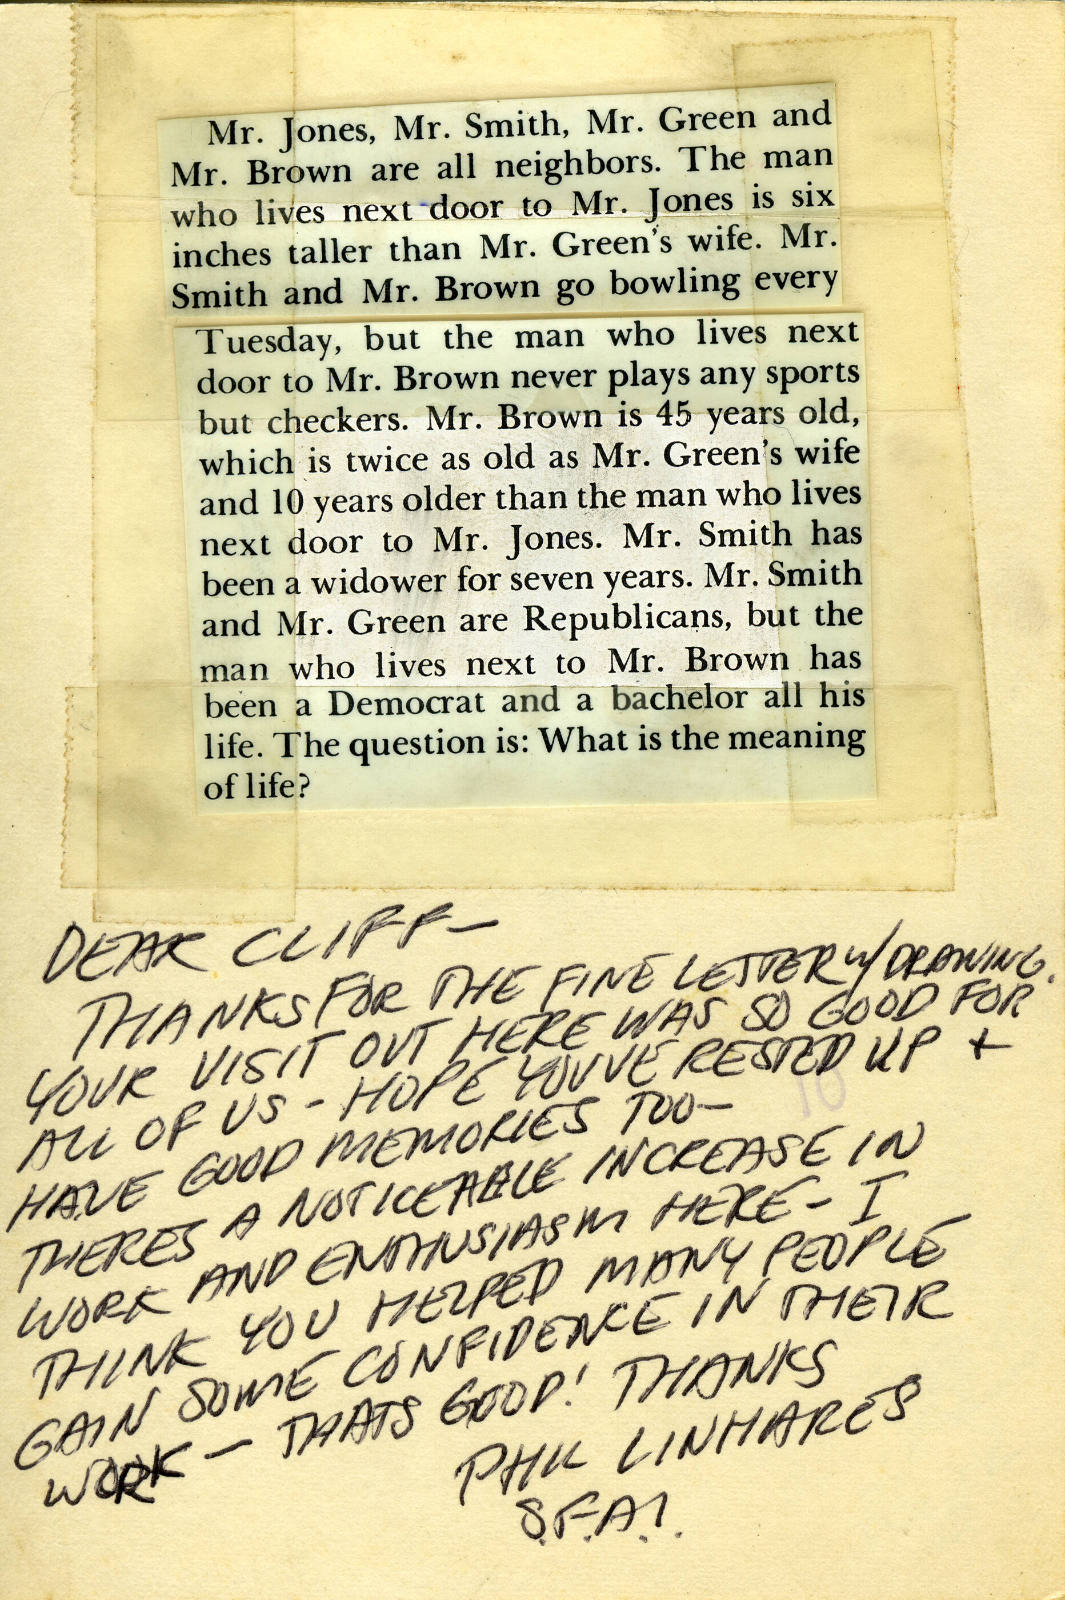 Mr. Jones, Mr. Smith, Mr. Green and
Mr. Brown are all neighbors. The man
who lives next door to Mr. Jones is six
inches taller than Mr. Green's wife. Mr.
Smith and Mr. Brown go bowling every
Tuesday, but the man who lives next
door to Mr. Brown never plays any sports
but checkers. Mr. Brown is 45 years old,
which is twice as old as Mr. Green's wife
and 10 years older than the man who lives
next door to Mr. Jones. Mr. Smith has
been a widower for seven years. Mr. Smith
and Mr. Green are Republicans, but the
man who lives next to Mr. Brown has
been a Democrat and a bachelor all his
life. The question is: What is the meaning
of life?
DEAR CLIFF—
THANKS FOR THE FINE LETTER W/DRAWING.
YOUR VISIT OUT HERE WAS SO GOOD FOR
ALL OF US - HOPE YOUVE RESTED UP +
HAVE GOOD MEMORIES TOO—
THERES A NOTICEABLE INCREASE IN
WORK AND ENTHUSIASM HERE - I
THINK YOU HELPED MANY PEOPLE
GAIN SOME CONFIDENCE IN THEIR
WORK — THATS GOOD! THANKS
PHIL LINHARES
S.F.A.I.
10